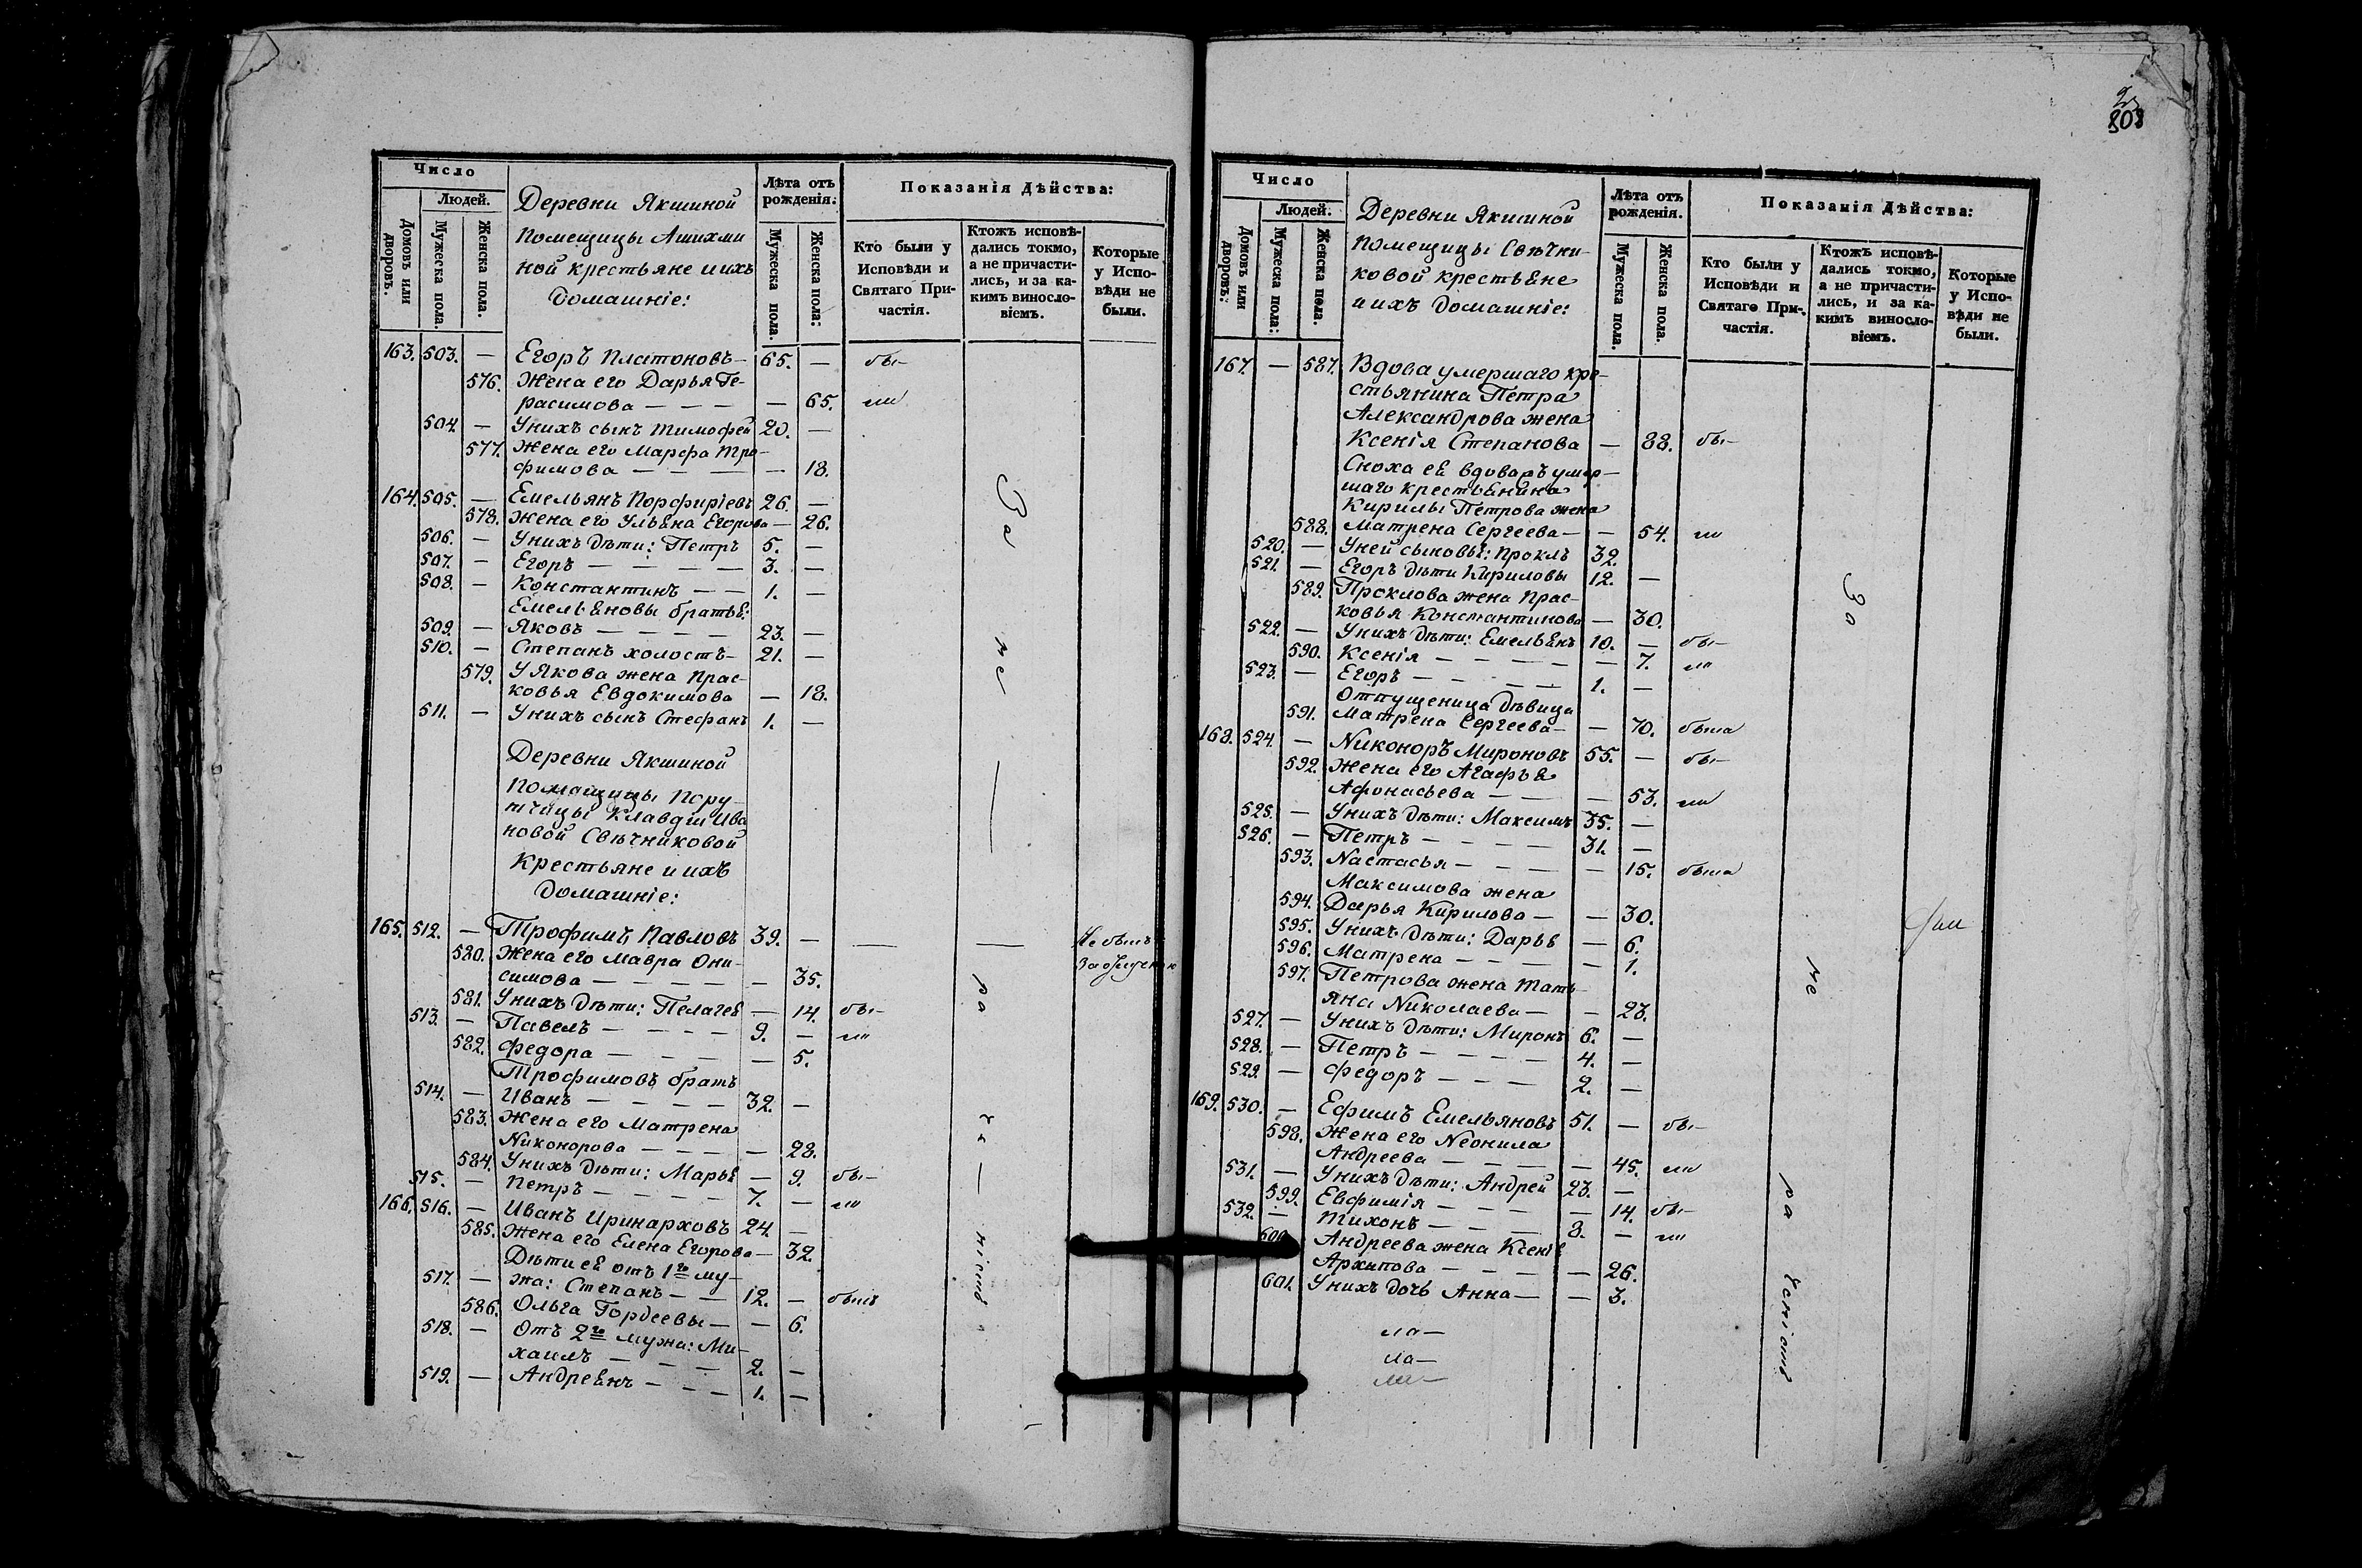 303
Число
Людей.
Домовъ или дворовъ.
Мужеска пола.
Женска пола.
Деревни Якшиной
Помещицы Ашихми
ной крестьяне и ихъ
домашніе:
Лѣта отъ рожденія:
Мужеска пола.
Женска пола:
Показанія Дѣйства:
Кто были у Исповѣди и Святаго Причастія.
Ктожъ исповѣдались токмо, а не причастились, и за какимъ винословіемъ.
Которые у Исповѣди не были.
163. 503. — Егоръ Платоновъ — 65. — бы—
576. Жена его Дарья Ге-
расимова — — — — 65. ли
504. — Унихъ сынъ Тимофей 20. —
577. Жена его Марфа Тро-
фимова — — — — 18.
164. 505. — Емельянъ Порфиріевъ 26. —
578. Жена его Ульяна Егорова — 26.
506. — Унихъ дѣти: Петръ 5. —
507. — Егоръ — — — — 3. —
508. — Константинъ — — 1. —
Емельяновы братья:
509. — Яковъ — — — — 23. —
510. — Степанъ холостъ — 21. —
579. У Якова жена Прас-
ковья Евдокимова — 18.
511. — Унихъ сынъ Стефанъ 1. —
За не
Деревни Якшиной
Помещицы Пору-
тчицы Клавдіи Ива
новой Свѣчниковой
Крестьяне и ихъ
домашніе:
165. 512. — Трофимъ Павловъ 39. — — — Не былъ
580. Жена его Мавра Они-
симова — — — — — 35.
581. Унихъ дѣти: Пелагея — 14. бы—
513. — Павелъ — — — — 9. — ли
582. Федора — — — — 5.
Трофимовъ братъ
514. — Иванъ — — — — 32. —
583. Жена его Матрена
Никонорова — — — — 28.
584. Унихъ дѣти: Марья — 9. бы—
515. — Петръ — — — — 7. — ли
166. 516. — Иванъ Иринарховъ 24. —
585. Жена его Елена Егорова — 32.
Дѣти ея отъ 1го му-
517. — жа: Степанъ — — 12. — былъ
586. Ольга Гордеевы — — 6.
518. — Отъ 2го мужа: Ми-
хаилъ — — — — 2. —
519. — Андреянъ — — — 1. —
ра че—ніемъ
Число
Людей.
Домовъ или дворовъ.
Мужеска пола:
Женска пола.
Деревни Якшиной
Помещицы Свѣчни-
ковой крестьяне
и ихъ домашніе:
Лѣта отъ рожденія.
Мужеска пола.
Женска пола.
Показанія Дѣйства:
Кто были у Исповѣди и Святаго Причастія.
Ктожъ исповѣдались токмо, а не причастились, и за какимъ винословіемъ.
Которые у Исповѣди не были.
167. — 587. Вдова умершаго кре-
стьянина Петра
Александрова жена
Ксенія Степанова — 88. бы—
Сноха ея вдова умер-
шаго крестьянина
Кирилы Петрова жена
588. Матрена Сергеева — — 54. ли
520. — Уней сыновья: Проклъ 32.
521. — Егоръ дѣти Кириловы 12. —
589. Проклова жена Прас-
ковья Константинова — 30.
522. — Унихъ дѣти: Емельянъ 10. — бы—
590. Ксенія — — — — — 7. ли
523. — Егоръ — — — — 1. —
Отпущеница дѣвица
591. Матрена Сергеева — — 70. была
168. 524. — Никоноръ Мироновъ 55. — бы—
592. Жена его Агафья
Афонасьева — — — 53. ли
525. — Унихъ дѣти: Максимъ 35. —
526. — Петръ — — — — 31. —
593. Настасья — — — — 15. была
Максимова жена
594. Дарья Кирилова — — 30.
595. Унихъ дѣти: Дарья — 6.
596. Матрена — — — — 1.
597. Петрова жена Тать-
яна Николаева — — 28.
527. — Унихъ дѣти: Миронъ 6. —
528. — Петръ — — — — 4. —
529. — Федоръ — — — 2. —
169. 530. — Ефимъ Емельяновъ 51. — бы—
598. Жена его Неонила
Андреева — — — — 45. ли
531. — Унихъ дѣти: Андрей 23. —
599. Евфимія — — — — 14. бы—
532. — Тихонъ — — — 8. — ли
600. Андреева жена Ксенія
Архипова — — — — 26.
601. Унихъ дочь Анна — — 3.
За не ра ченіемъ